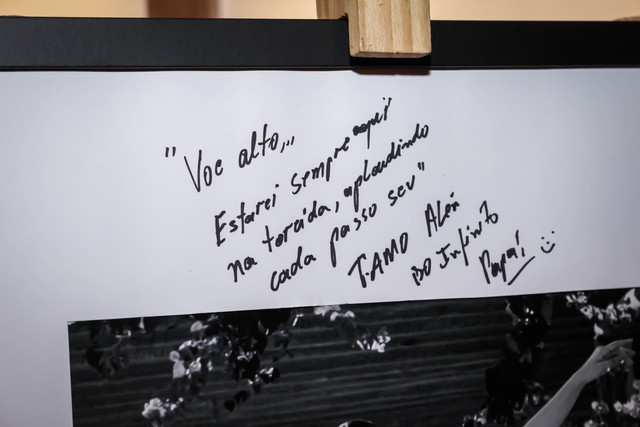 "Voe alto...
Estarei sempre aqui
na torcida, aplaudindo
cada passo seu"
T.AMO Além
DO Infinito
Papai :)